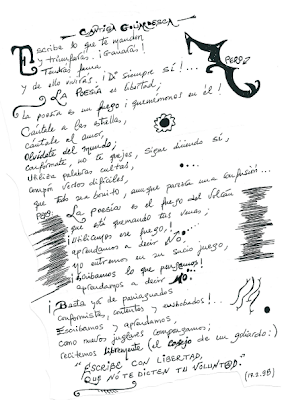 CANTIGA GOLIARDESCA
Escribe lo que te manden
y triunfarás. ¡Ganarás!
Tendrás fama
y de ello vivirás. ¡Di siempre sí!... PERO:
LA POESÍA es libertad;
La poesía es un fuego; ¡quememonos en él!
Cántale a las estrellas,
cántale al amor,
olvídate del mundo;
confórmate, no te quejes, sigue diciendo sí,
Utiliza palabras cultas,
compón versos difíciles,
que todo sea bonito, aunque parezca una confusión...
PERO: La poesía es el fuego del volcán
que está quemando tus venas;
¡Utilicemos ese fuego,
aprendamos a decir NO...
no entremos en su sucio juego,
¡Escribamos lo que pensamos!
aprendamos a decir NO...
¡Basta ya de paniaguados
conformistas, contentos y enchobados!...
Escribamos y aprendamos,
como nuevos juglares compongamos;
recitemos libremente (el consejo de un goliardo:)
"ESCRIBE CON LIBERTAD,
QUE NO TE DICTEN TU VOLUNT@D." (17.2.98)